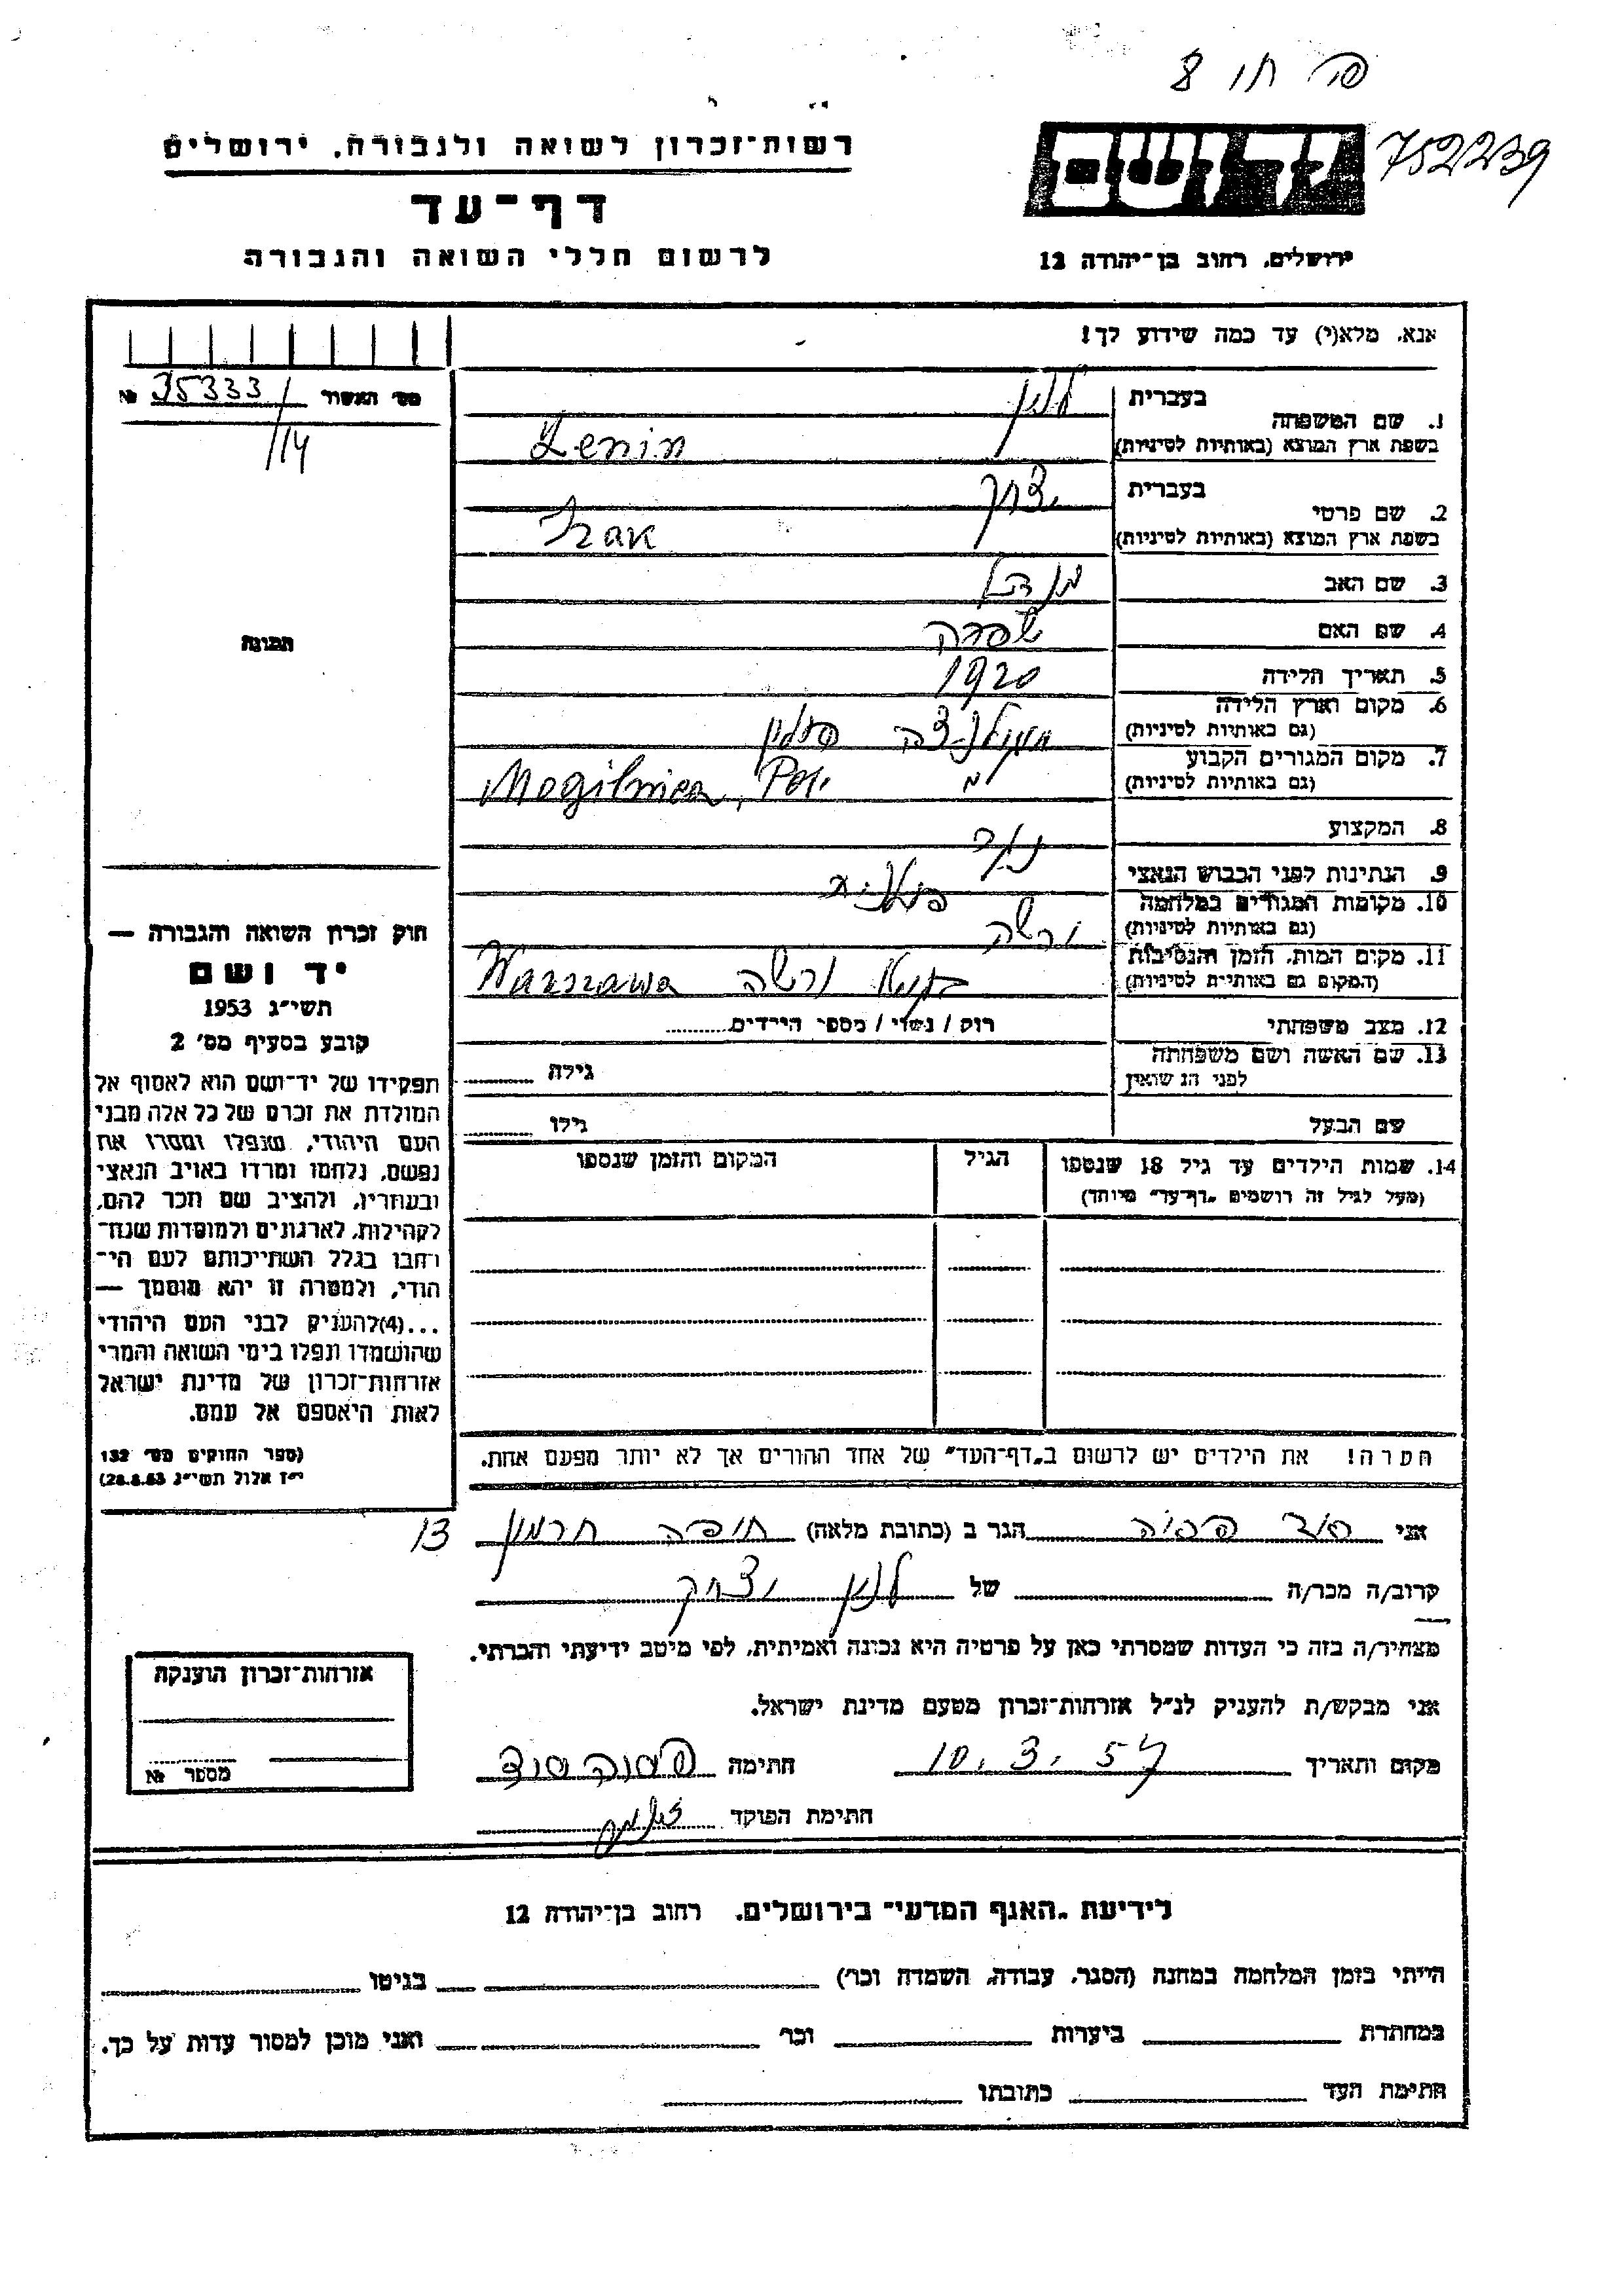 פר חו 8
יד ושם 752239
רשות־זכרון לשואה ולגבורה, ירושלים
דף־עד
לרשום חללי השואה והגבורה
ירושלים, רחוב בן־יהודה 12
אנא, מלא(י) עד כמה שידוע לך!
מס׳ האשור № 35333/
114
תמונה
חוק זכרון השואה והגבורה —
יד ושם
תשי״ג 1953
קובע בסעיף מס׳ 2
תפקידו של יד־ושם הוא לאסוף אל
המולדת את זכרם של כל אלה מבני
העם היהודי, שנפלו ומסרו את
נפשם, נלחמו ומרדו באויב הנאצי
ובעוזריו, ולהציב שם וזכר להם,
לקהילות, לארגונים ולמוסדות שנח־
רחבו בגלל השתייכותם לעם הי־
הודי, ולמטרה זו יהא מוסמך —
...(4) להעניק לבני העם היהודי
שהושמדו ונפלו בימי השואה והמרי
אזרחות־זכרון של מדינת ישראל
לאות היאספם אל עמם.
(ספר החוקים מס׳ 132
י״ז אלול תשי״ג 28.8.53)
1. שם המשפחה בעברית לנין
בשפת ארץ המוצא (באותיות לטיניות) Lenin
2. שם פרטי בעברית יצחק
בשפת ארץ המוצא (באותיות לטיניות) Izak
3. שם האב מנדל
4. שם האם שפרה
5. תאריך הלידה 1920
6. מקום וארץ הלידה (גם באותיות לטיניות) מוגילניצה פולין
7. מקום המגורים הקבוע (גם באותיות לטיניות) Mogilnica, Pol
8. המקצוע
9. הנתינות לפני הכבוש הנאצי פולנית
10. מקומות המגורים במלחמה (גם באותיות לטיניות) ורשה
11. מקום המות, הזמן והנסיבות (המקום גם באותיות לטיניות) בגיטו ורשה Warszawa
12. מצב משפחתי רווק / נשוי / מספר הילדים
13. שם האשה ושם משפחתה לפני הנשואין גילה
שם הבעל גילו
14. שמות הילדים עד גיל 18 שנספו הגיל המקום והזמן שנספו
(מעל לגיל זה רושמים „דף־עד״ מיוחד)
הערה! את הילדים יש לרשום ב„דף־העד״ של אחד ההורים אך לא יותר מפעם אחת.
אני הגר ב (כתובת מלאה) חיפה חרמון 13
קרוב/ה מכר/ה של לנין יצחק
מצהיר/ה בזה כי העדות שמסרתי כאן על פרטיה היא נכונה ואמיתית, לפי מיטב ידיעתי והכרתי.
אני מבקש/ת להעניק לנ״ל אזרחות־זכרון מטעם מדינת ישראל.
מקום ותאריך 10.3.57 חתימה
חתימת הפוקד
אזרחות־זכרון הוענקה
מספר №
לידיעת „האגף המדעי״ בירושלים, רחוב בן־יהודה 12
הייתי בזמן המלחמה במחנה (הסגר, עבודה, השמדה וכר׳) בגיטו
במחתרת ביערות וכר׳ ואני מוכן למסור עדות על כך.
חתימת העד כתובתו